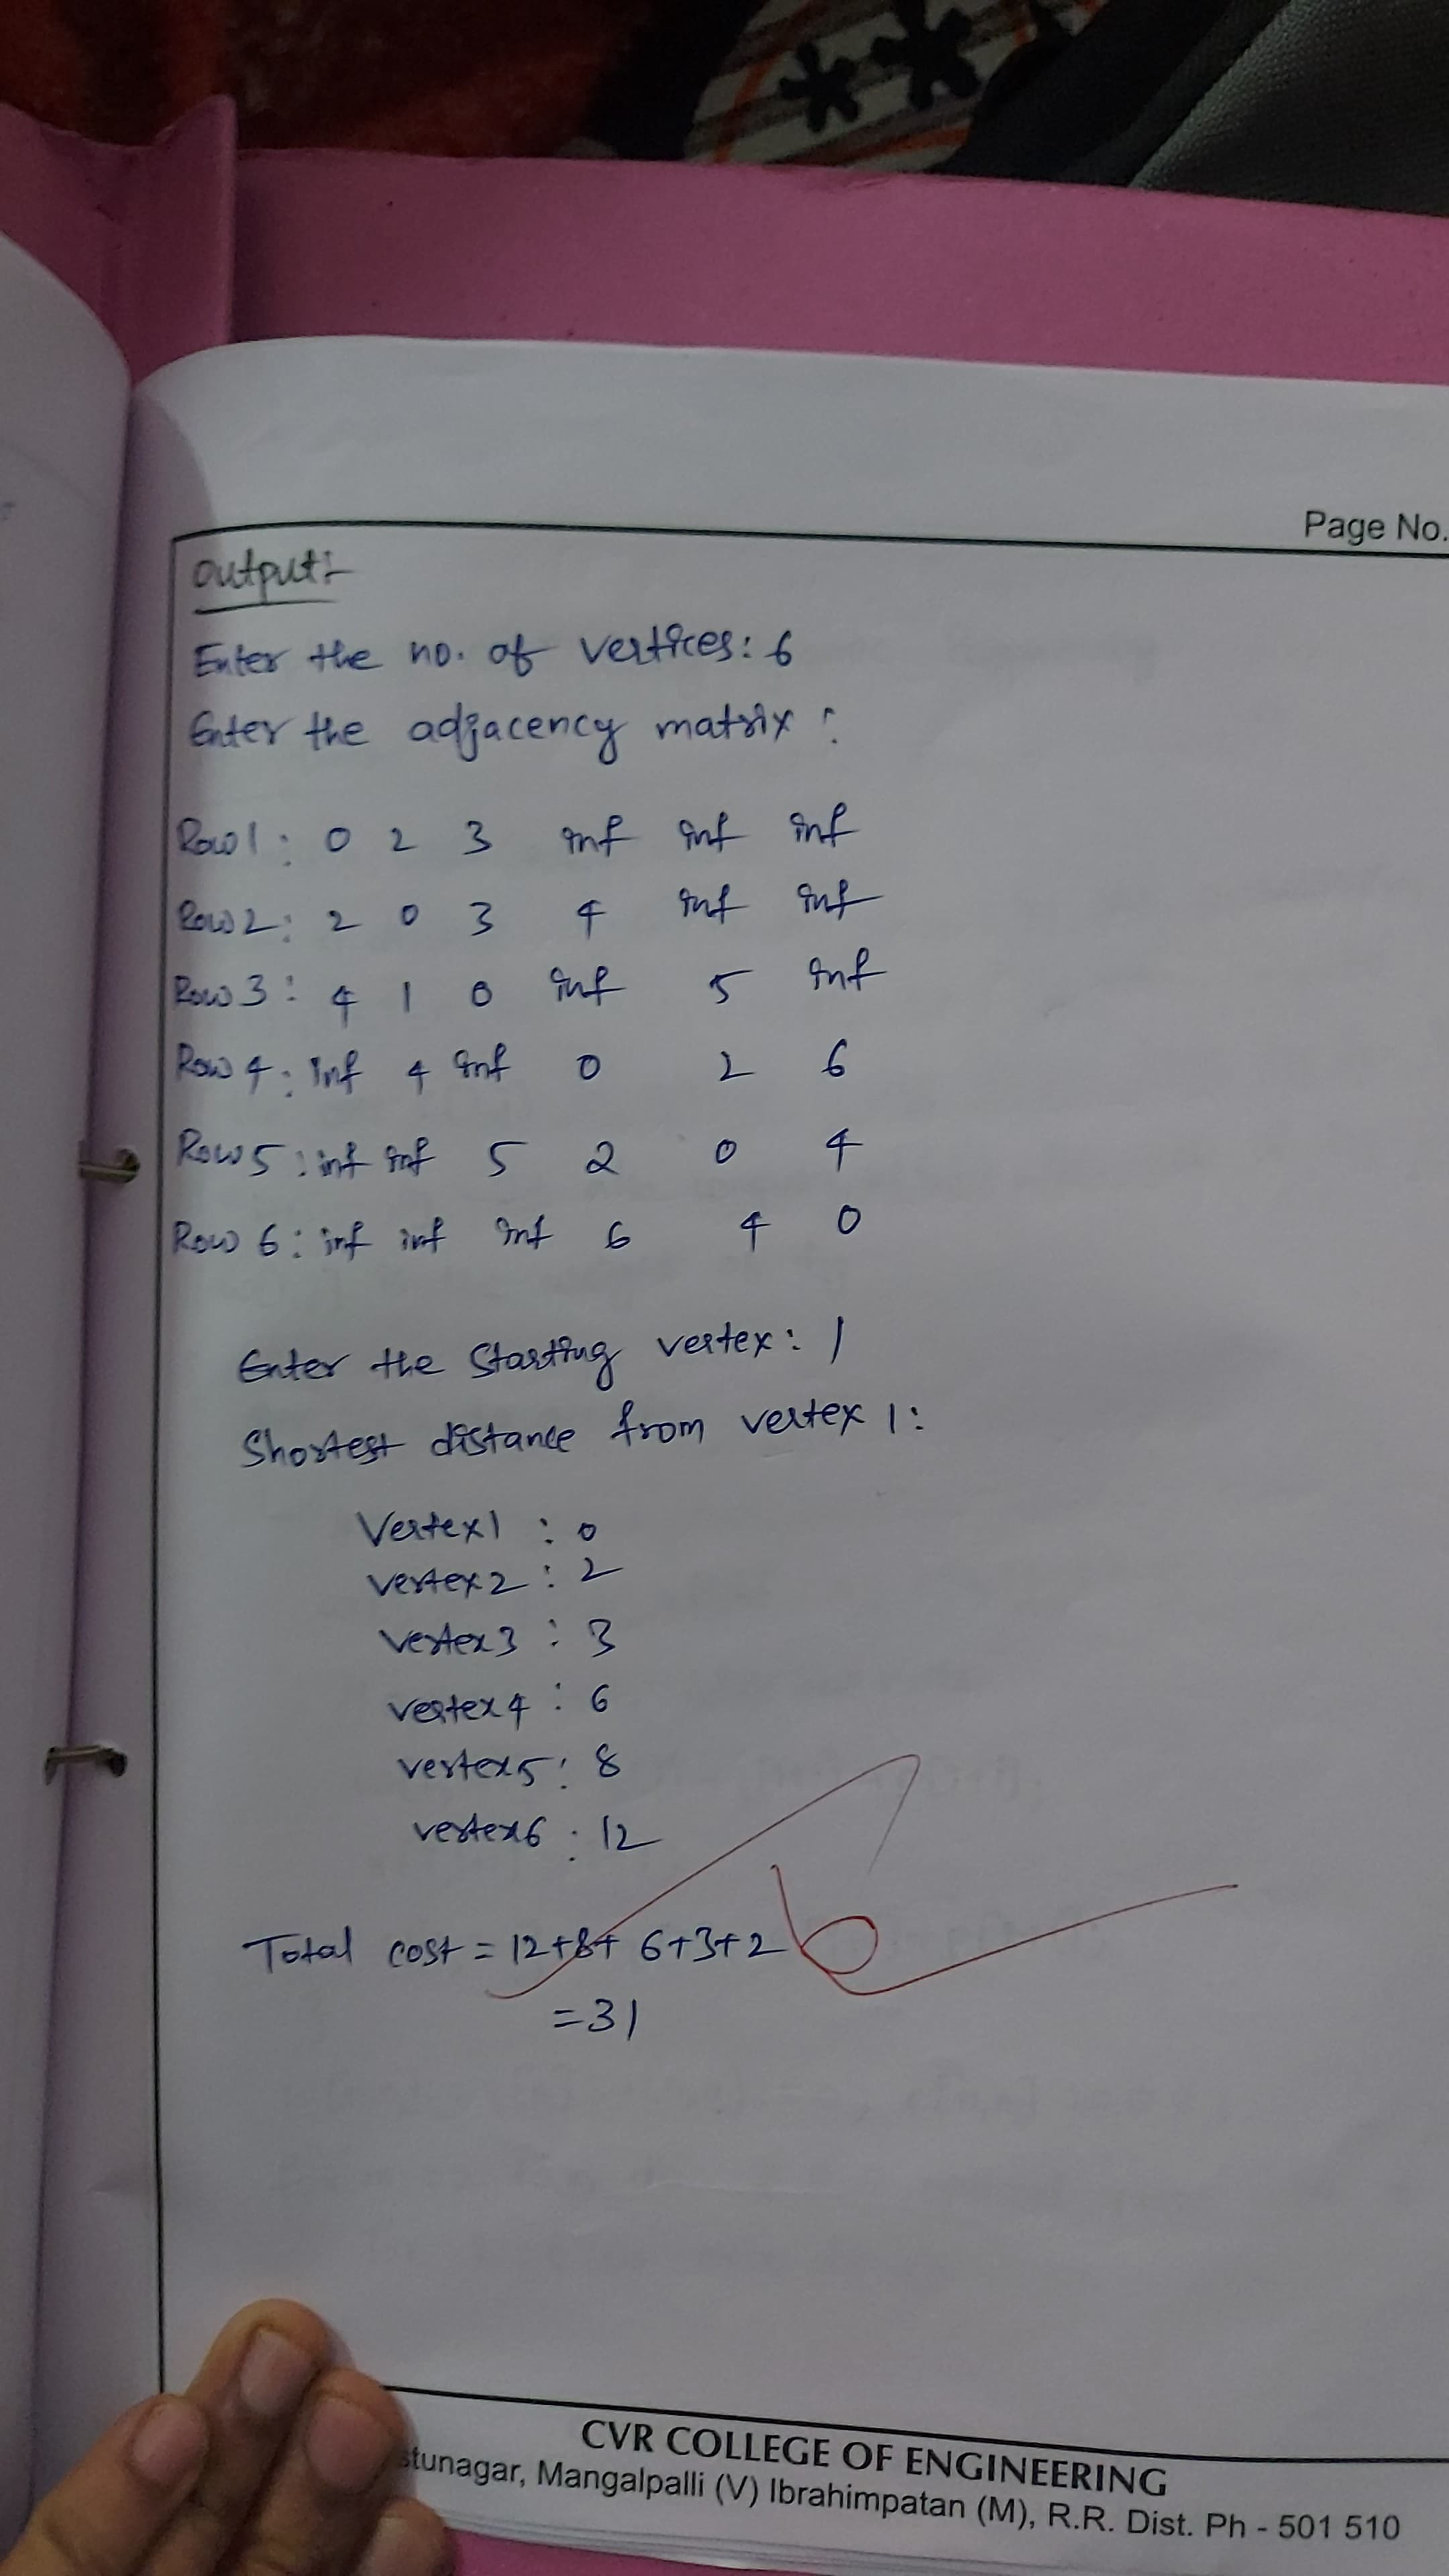 Page No.
output:-
Enter the no. of vertices: 6
Enter the adjacency matrix :
Row 1 : 0 2 3 inf inf inf
Row 2 : 2 0 3 4 inf inf
Row 3 : 4 1 0 inf 5 inf
Row 4 : inf 4 inf 0 2 6
Row 5 : inf inf 5 2 0 4
Row 6 : inf inf inf 6 4 0
Enter the starting vertex : 1
Shortest distance from vertex 1 :
Vertex1 : 0
vertex2 : 2
vertex3 : 3
vertex4 : 6
vertex5 : 8
vertex6 : 12
Total cost = 12+8+6+3+2
=31
CVR COLLEGE OF ENGINEERING
stunagar, Mangalpalli (V) Ibrahimpatan (M), R.R. Dist. Ph - 501 510